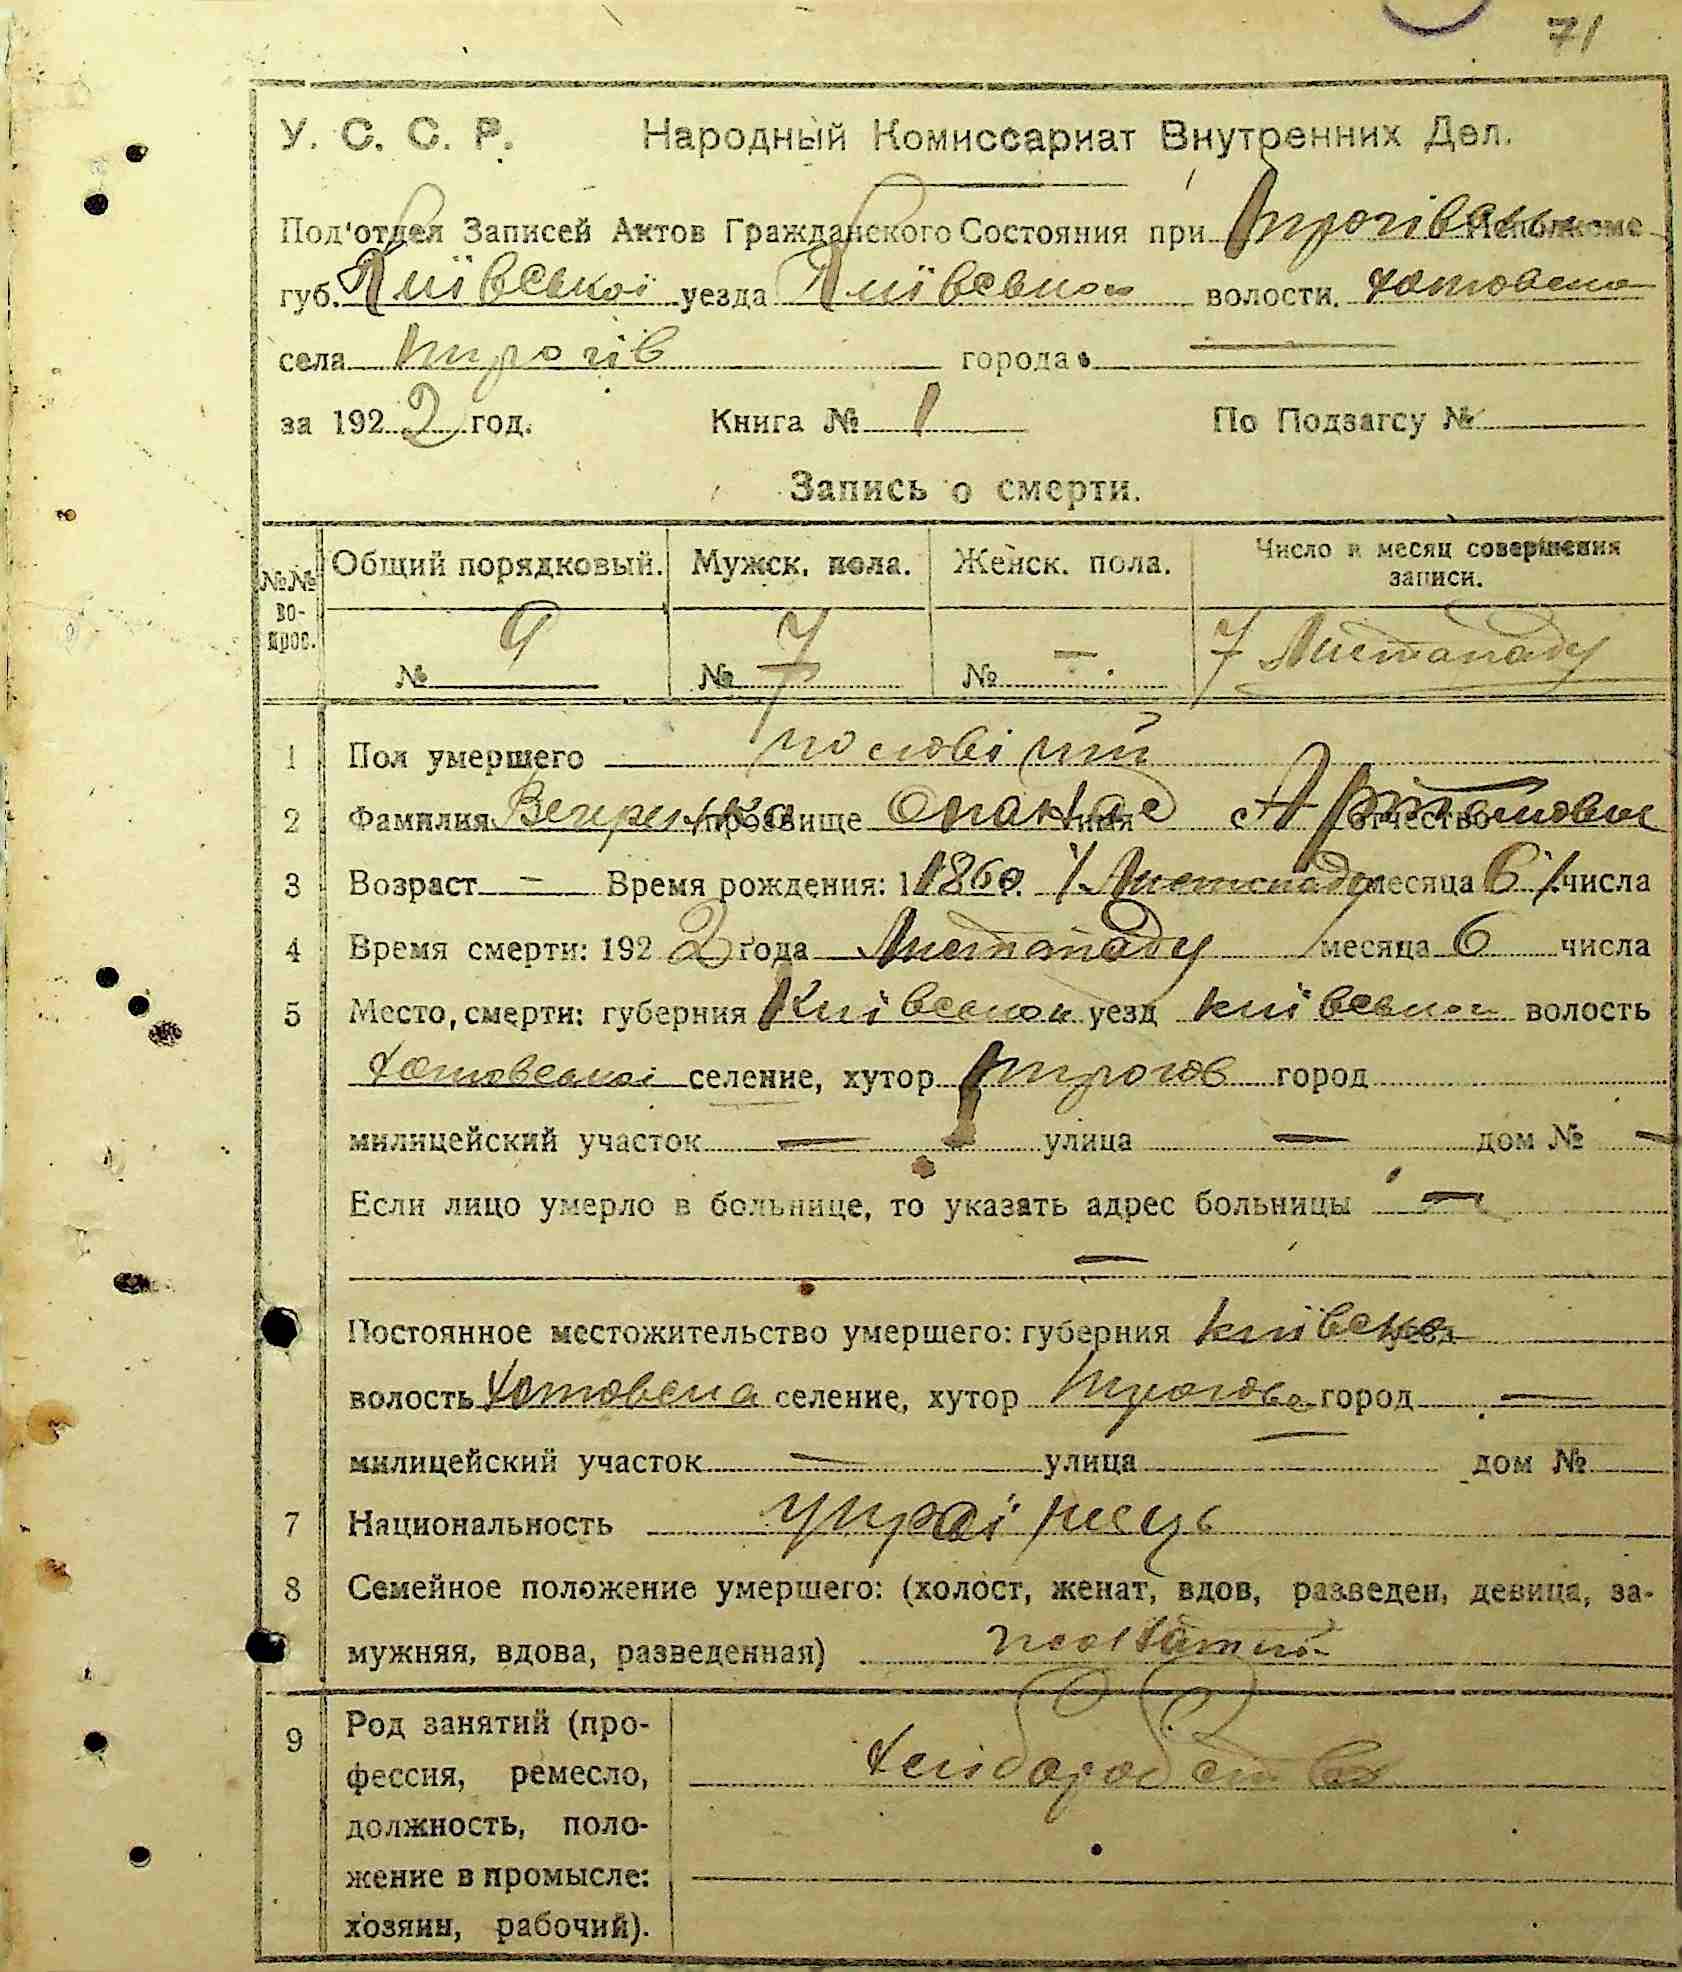 71
У. С. С. Р. Народный Комиссариат Внутренних Дел.
Под'отдел Записей Актов Гражданского Состояния при Пирогівськ Исполкоме
губ. Київської уезда Київськой волости. Хотовська
села Пирогів города
за 192 2 год. Книга № 1 По Подзагсу №
Запись о смерти.
№№ вопрос. Общий порядковый. Мужск. пола. Женск. пола. Число и месяц совершения записи.
№ 9 № 7 № — 7 Листопаду
1 Пол умершего чоловічий
2 Фамилия прозвище Опанас имя отчество
3 Возраст — Время рождения: 1 1860 Листопаду месяца 6 числа
4 Время смерти: 192 2 года Листопаду месяца 6 числа
5 Место, смерти: губерния Київськой уезд Київськой волость
Хотовської селение, хутор Пирогов город
милицейский участок — улица — дом № —
Если лицо умерло в больнице, то указать адрес больницы —
—
Постоянное местожительство умершего: губерния Київська уезд
волость Хотовська селение, хутор город —
милицейский участок — улица — дом №
7 Национальность українець
8 Семейное положение умершего: (холост, женат, вдов, разведен, девица, за-
мужняя, вдова, разведенная)
9 Род занятий (про-
фессия, ремесло, хліборобство
должность, поло-
жение в промысле:
хозяин, рабочий).